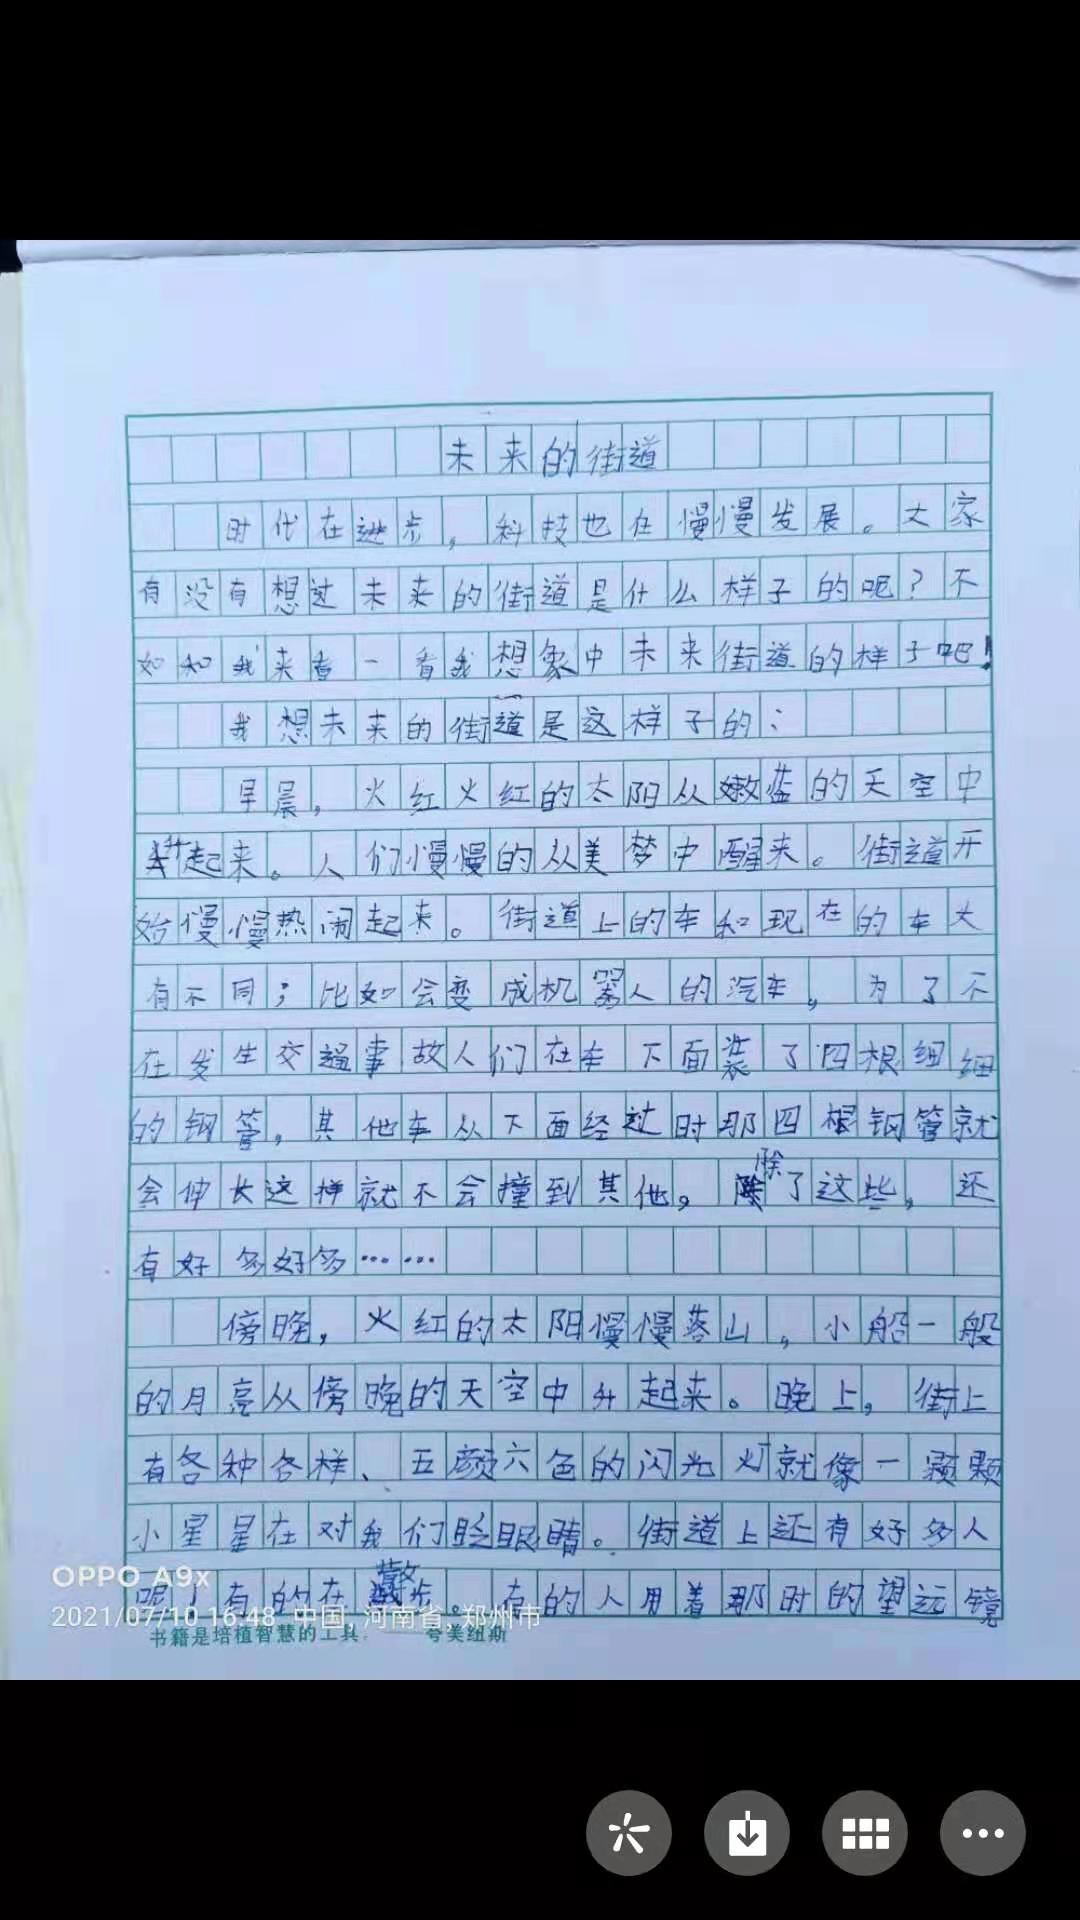 未来的街道
时代在进步，科技也在慢慢发展。大家
有没有想过未来的街道是什么样子的呢？不
如和我来看一看我想象中未来街道的样子吧！
我想未来的街道是这样子的：
早晨，火红火红的太阳从嫩蓝的天空中
升起来。人们慢慢的从美梦中醒来。街道开
始慢慢热闹起来。街道上的车和现在的车大
有不同；比如会变成机器人的汽车，为了不
在发生交通事故人们在车下面装了四根细细
的钢管，其他车从下面经过时那四根钢管就
会伸长这样就不会撞到其他，除了这些，还
有好多好多……
傍晚，火红的太阳慢慢落山，小船一般
的月亮从傍晚的天空中升起来。晚上，街上
有各种各样、五颜六色的闪光灯就像一颗颗
小星星在对我们眨眼睛。街道上还有好多人
呢！有的在散步。有的人用着那时的望远镜
OPPO A9x
2021/07/10 16:48 中国，河南省，郑州市
书籍是培植智慧的工具。——夸美纽斯